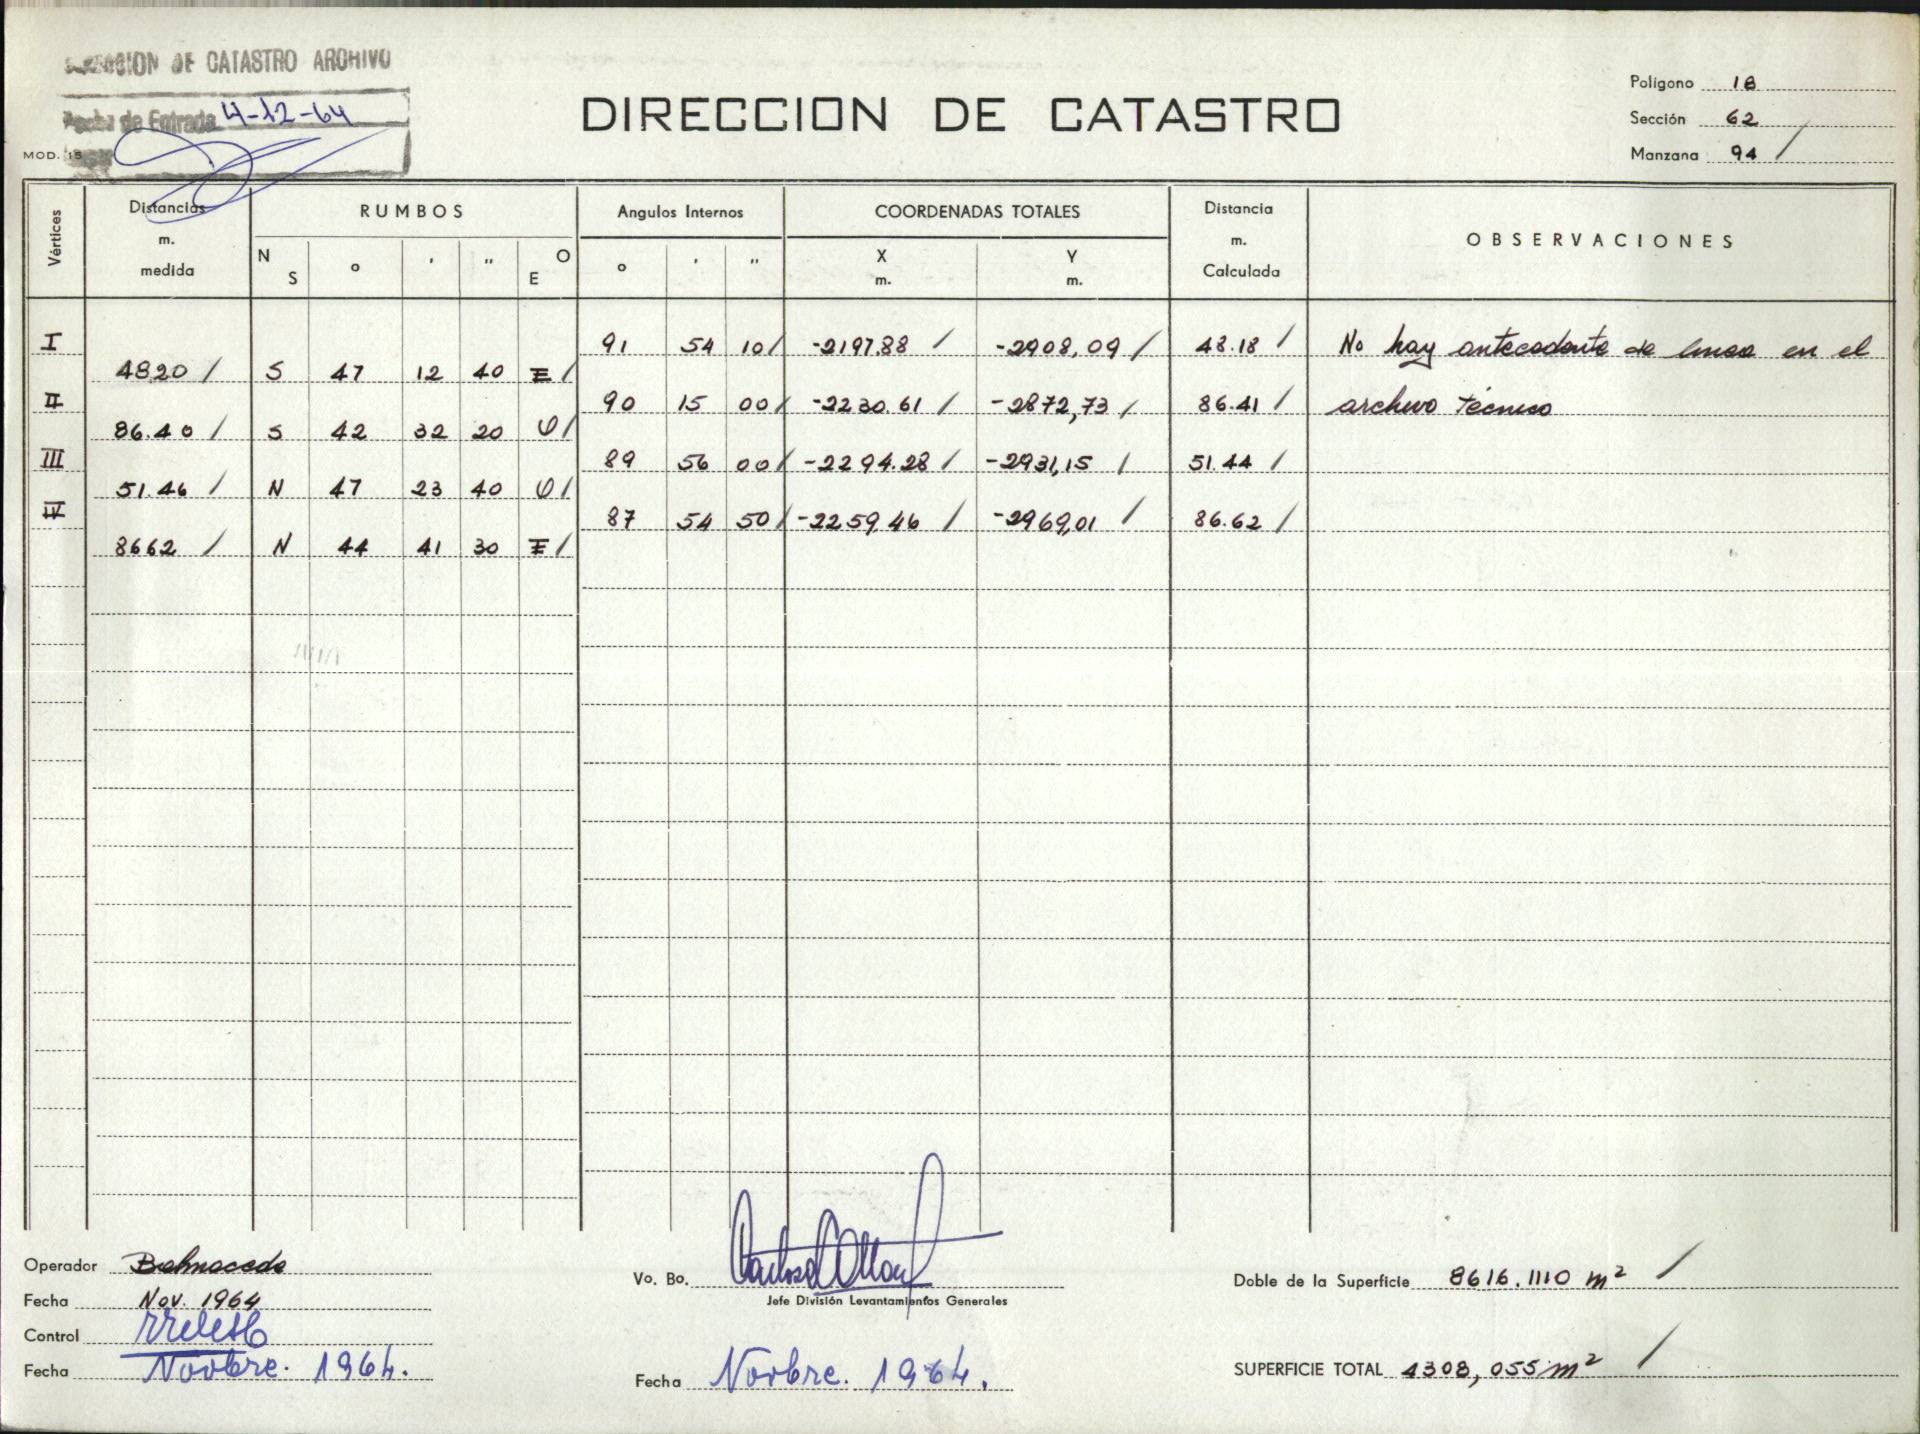 DIRECCION DE CATASTRO ARCHIVO
Fecha de Entrada 4-12-64
MOD. 15
DIRECCION DE CATASTRO
Polígono 18
Sección 62
Manzana 94 /
Vértices
Distancias m. medida
RUMBOS
N S ° ' " O E
Angulos Internos
° ' "
COORDENADAS TOTALES
X m. Y m.
Distancia m. Calculada
OBSERVACIONES
I 91 54 10 / -2197.88 / -2908,09 / 48.18 / No hay antecedente de linea en el
48.20 / S 47 12 40 E /
II 90 15 00 / -2230.61 / -2872,73 / 86.41 / archivo técnico
86.40 / S 42 32 20 O /
III 89 56 00 / -2294.28 / -2931,15 / 51.44 /
51.46 / N 47 23 40 O /
IV 87 54 50 / -2259.46 / -2969,01 / 86.62 /
8662 / N 44 41 30 E /
Operador Balmaceda
Fecha Nov. 1964
Control
Fecha Novbre. 1964.
Vo. Bo.
Jefe División Levantamientos Generales
Fecha Novbre. 1964.
Doble de la Superficie 8616.1110 m² /
SUPERFICIE TOTAL 4308,055 m² /